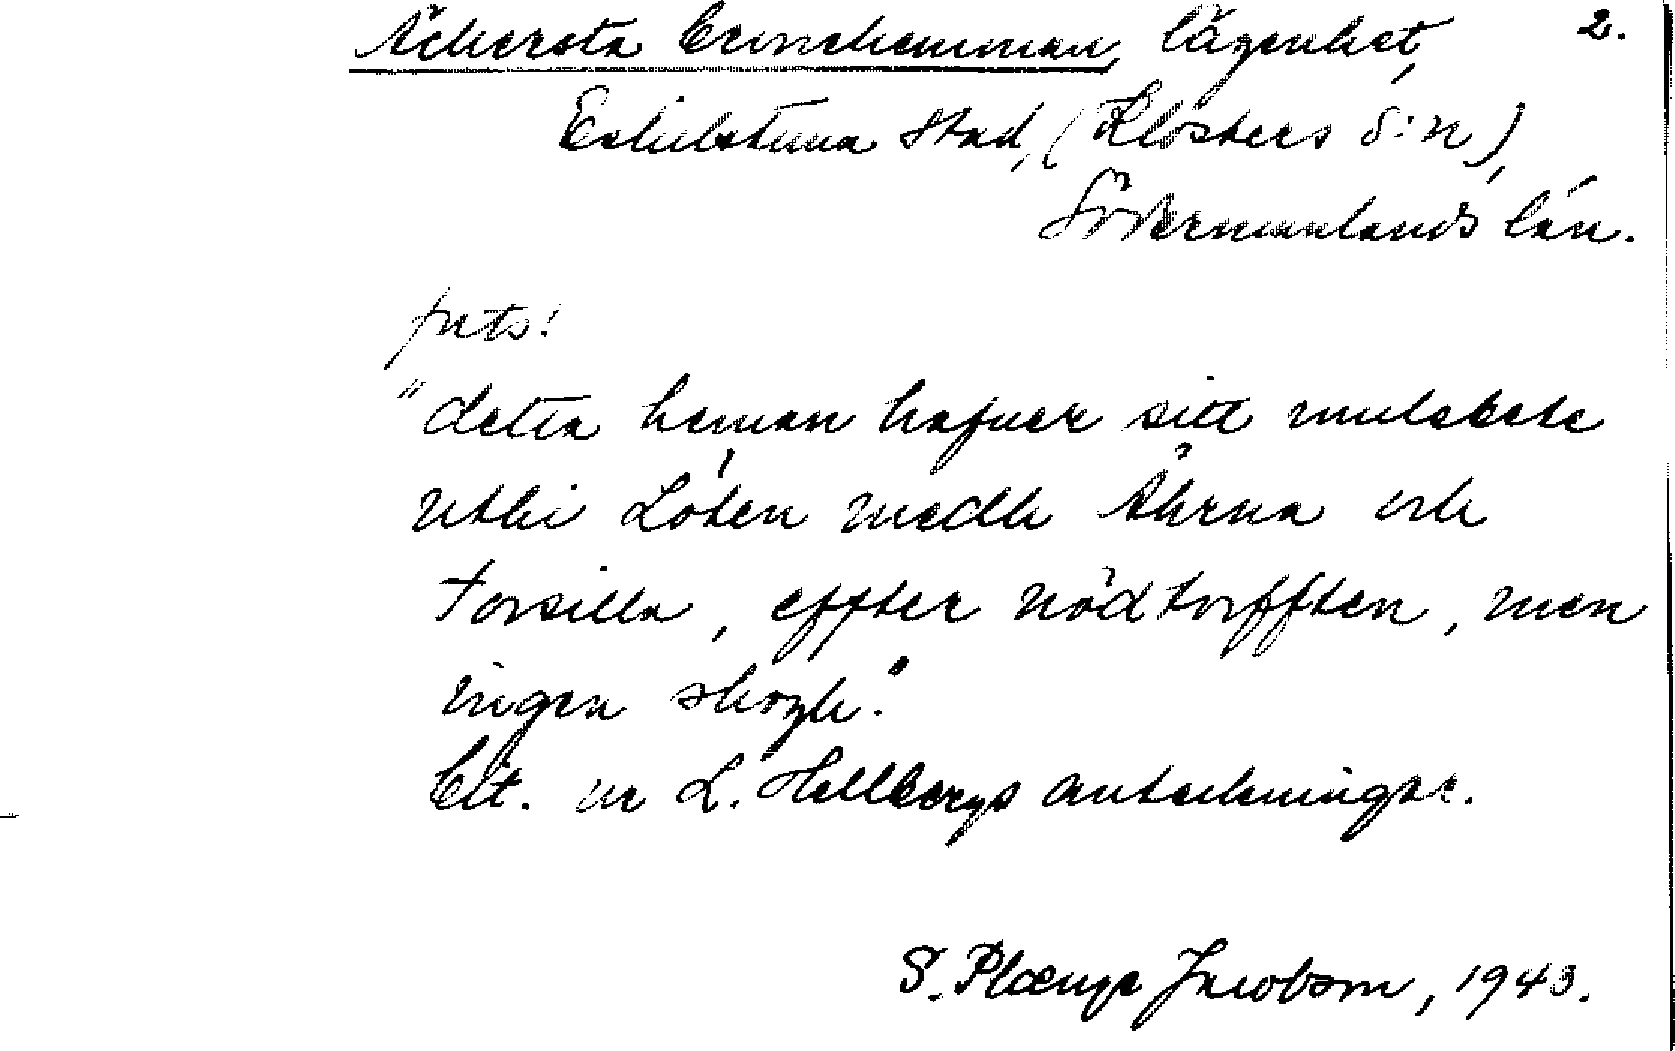 Åckersta Cronehemman, lägenhet, 2.
Eskilstuna stad, (Klosters s:n),
Södermanlands län.
forts:
"detta heman hafuer sitt mulebete
uthi Löten medh Åhrna och
Torsilla, effter nödtorfften, men
ingen skogh".
Cit. ur L. Hellbergs anteckningar.
S. Plænge Jacobson, 1943.